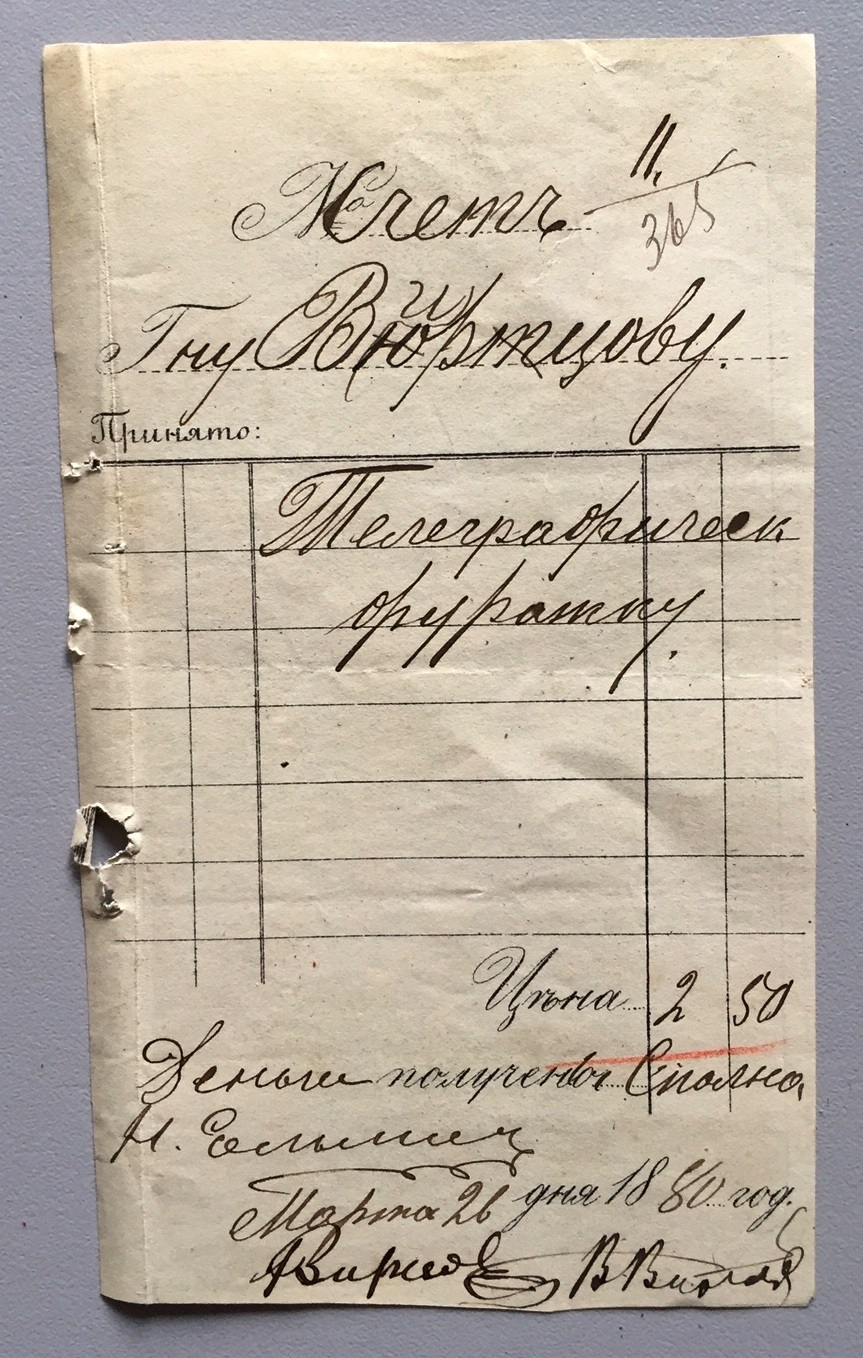 № Счетъ 11.
365
Гну
Принято:
Телеграфическ
фуражку.
Цѣна 2 50
Деньги получены Сполна
Марта 26 дня 1880 год.